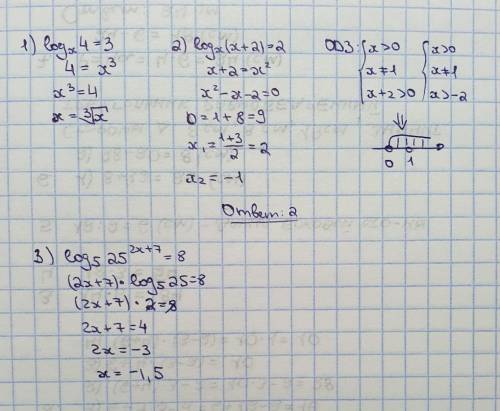 1) logₓ4=3
4 = x³
x³=4
x = ∛x
2) logₓ(x+2)=2
x+2=x²
x²-x-2=0
D=1+8=9
x₁=(1+3)/2=2
x₂=-1
Ответ: 2
ОДЗ: {x>0 {x>0
x≠1 x≠1
x+2>0 x>-2
0 1
3) log₅25^(2x+7)=8
(2x+7)·log₅25=8
(2x+7)·2=8
2x+7=4
2x=-3
x=-1,5